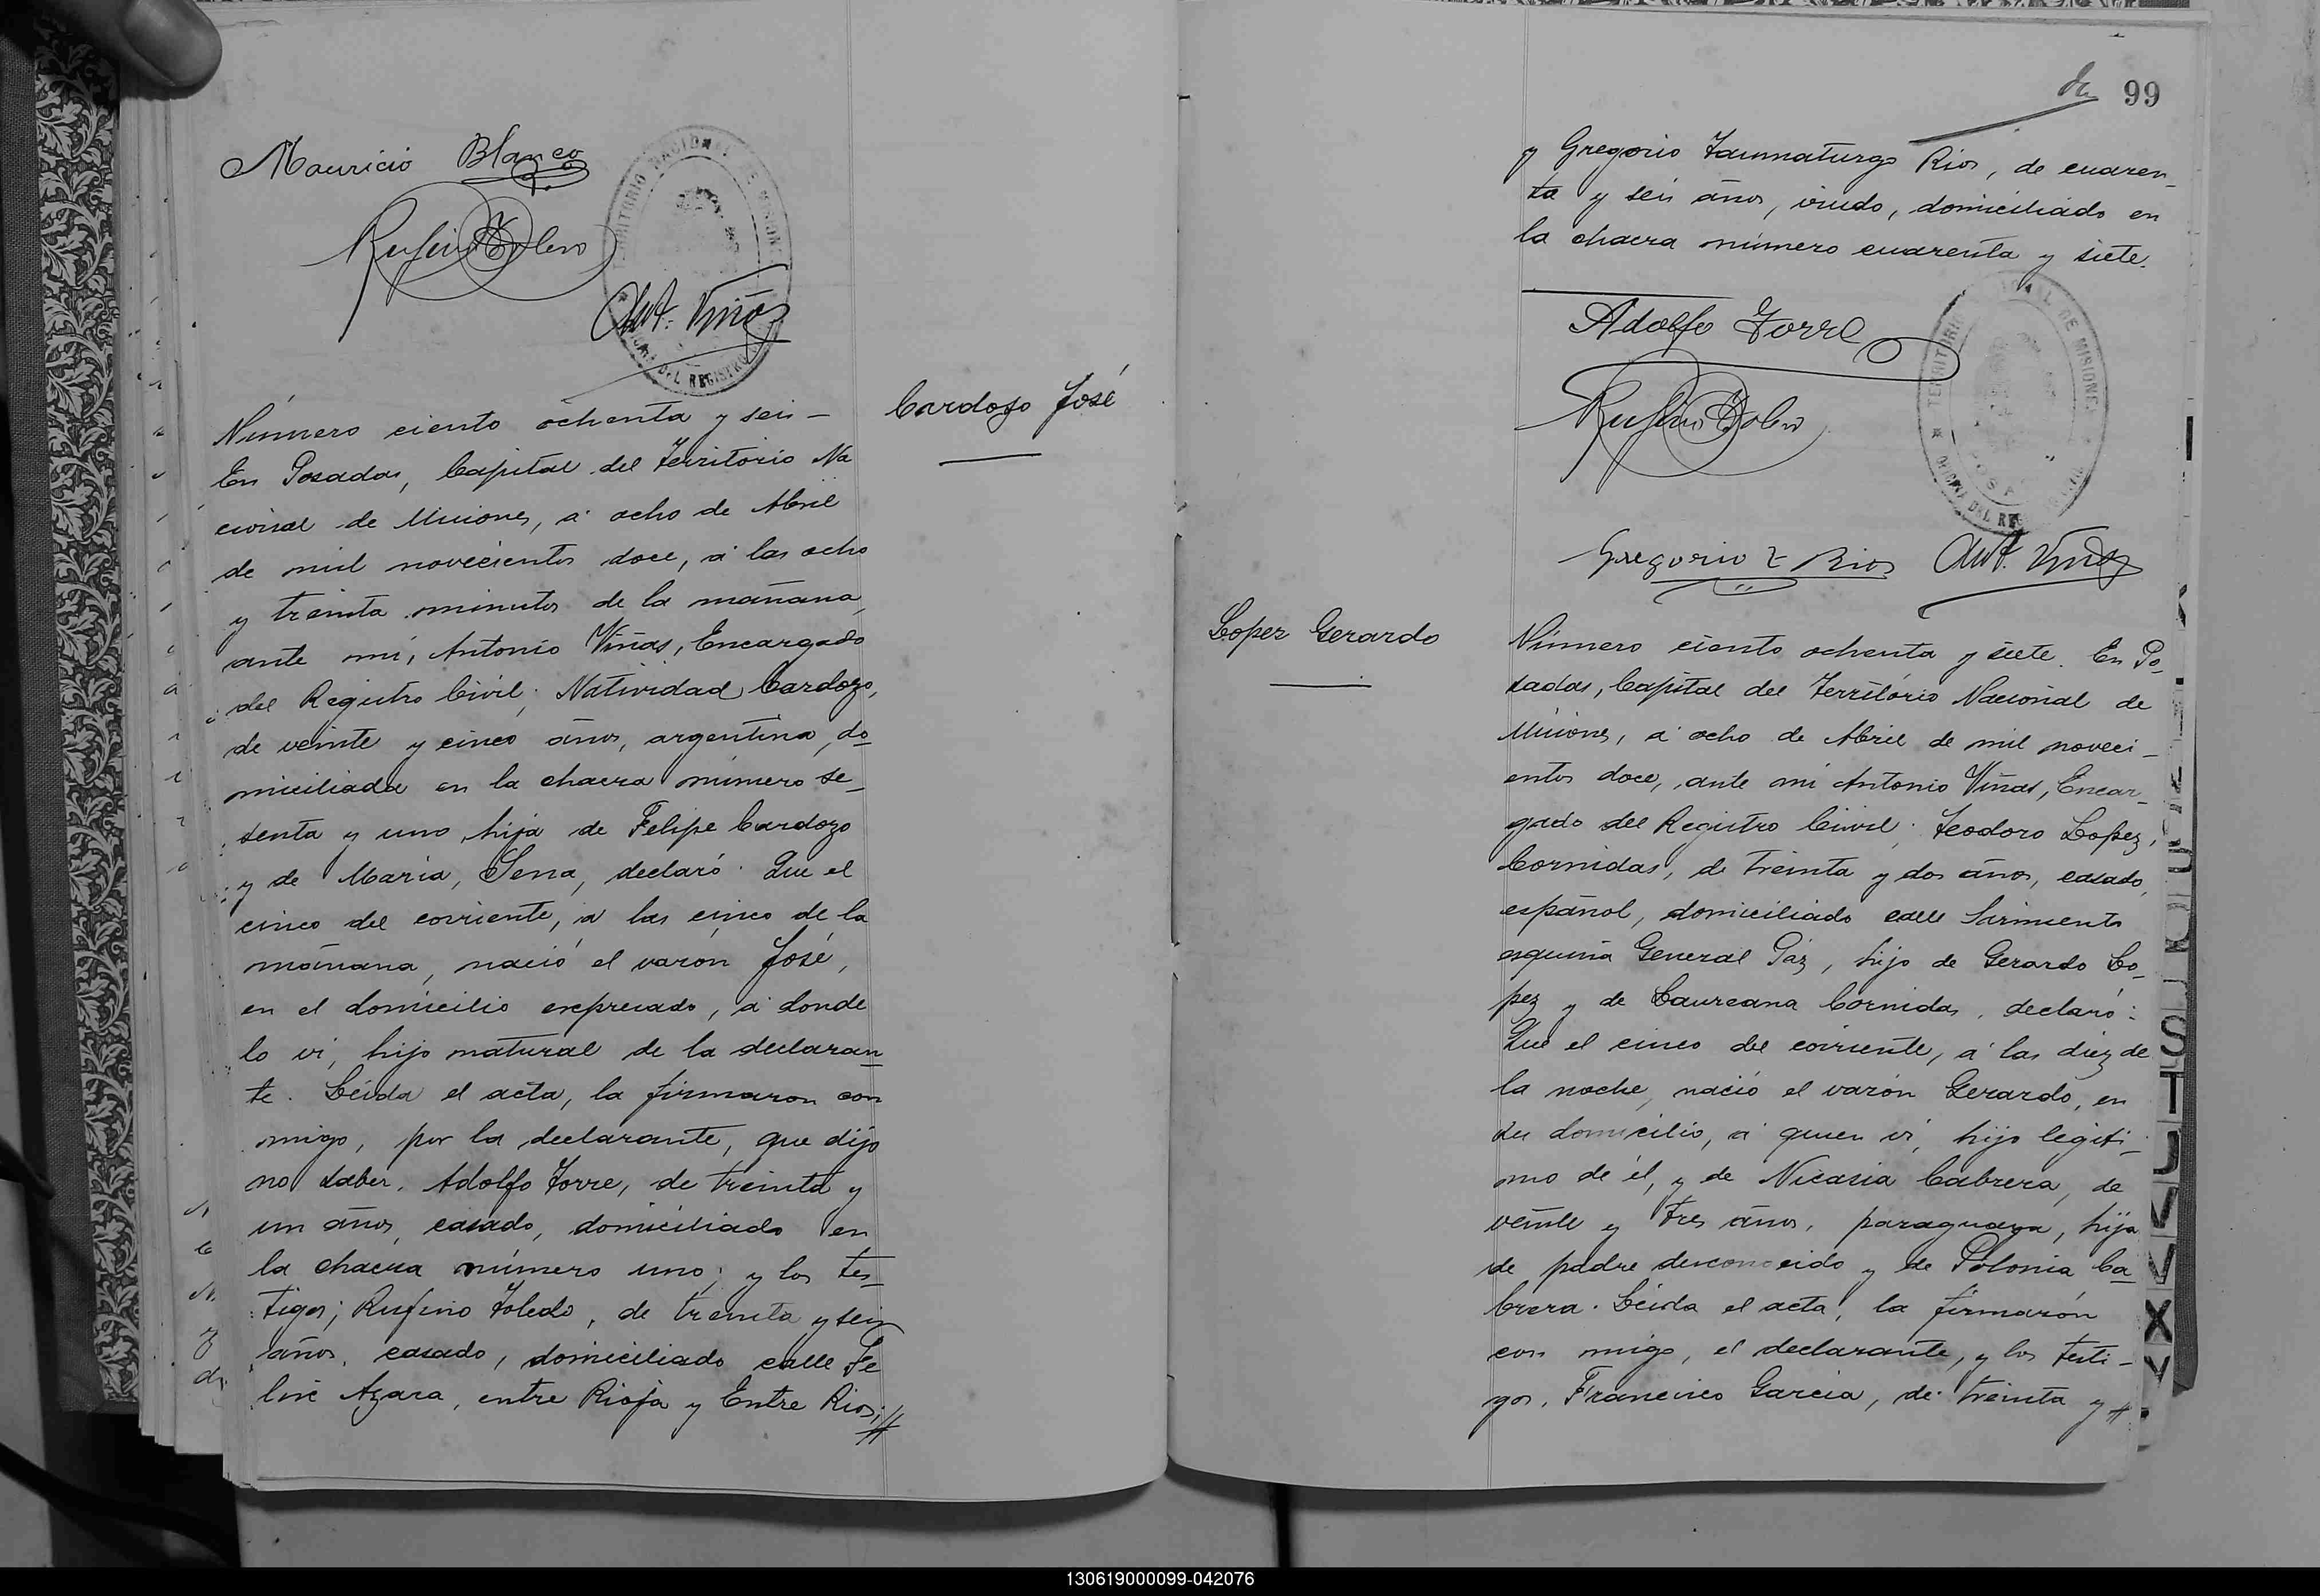 Mauricio Blanco
Rufino Toledo
Ant. Viñas
TERRITORIO NACIONAL DE MISIONES
OFICINA DEL REGISTRO
Cardozo José
Número ciento ochenta y seis -
En Posadas, Capital del Territorio Na
cional de Misiones, á ocho de Abril
de mil novecientos doce, á las ocho
y treinta minutos de la mañana,
ante mí, Antonio Viñas, Encargado
del Registro Civil; Natividad Cardozo,
de veinte y cinco años, argentina, do
miciliada en la chacra número se-
senta y uno, hija de Felipe Cardozo
y de María, Sena, declaró: Que el
cinco del corriente, á las cinco de la
mañana, nació el varón José,
en el domicilio expresado, á donde
lo ví, hijo natural de la declaran
te. Leída el acta, la firmaron con
migo, por la declarante, que dijo
no saber, Adolfo Torre, de treinta y
un años, casado, domiciliado en
la chacra número uno; y los tes-
tigos; Rufino Toledo, de treinta y seis
años, casado, domiciliado calle Fe
lix Azara, entre Rioja y Entre Rios; //
99
y Gregorio Taumaturgo Rios, de cuaren-
ta y seis años, viudo, domiciliado en
la chacra número cuarenta y siete.
Adolfo Torre
Rufino Toledo
TERRITORIO NACIONAL DE MISIONES
OFICINA DEL REGISTRO
Gregorio T Rios Ant. Viñas
Lopez Gerardo
Número ciento ochenta y siete. En Po-
sadas, Capital del Territorio Nacional de
Misiones, á ocho de Abril de mil noveci-
entos doce, ante mí Antonio Viñas, Encar-
gado del Registro Civil; Teodoro Lopez,
Cornidas, de treinta y dos años, casado,
español, domiciliado calle Sarmiento
esquina General Paz, hijo de Gerardo Lo-
pez y de Laureana Cornidas, declaró:
Que el cinco del corriente, á las diez de
la noche, nació el varón Gerardo, en
su domicilio, á quien ví, hijo legíti-
mo de él, y de Nicasia Cabrera, de
veinte y tres años, paraguaya, hija
de padre desconocido y de Polonia Ca
brera. Leída el acta, la firmarón
con migo, el declarante, y los testi-
gos, Francisco Garcia, de treinta y //
S
T
U
V
X
130619000099-042076